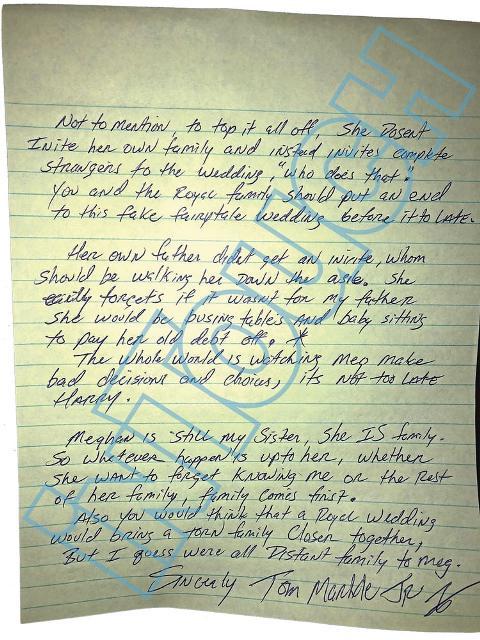 Not to mention, to top it all off, She Dosent
Inite her own family and instead invites complete
strangers to the wedding, "who does that."
You and the Royal family should put an end
to this fake fairytale wedding before it to LATE.
Her own father didnt get an inite, whom
should be walking her Down the asle. She
forgets if it wasnt for my father
She would be busing tables AND baby sitting
to pay her old debt off. *
The whole world is watching Meg make
bad decisions and choices, its NOT too LATE
HARRY.
Meghan is still my Sister, She IS family.
So whatever happen is up to her, whether
She want to forget Knowing me or the Rest
of her family, family comes first.
Also you would think that a Royal Wedding
would bring a torn family Closer together,
But I guess were all Distant family to Meg.
Sincerly Tom Markle Jr
InTouch